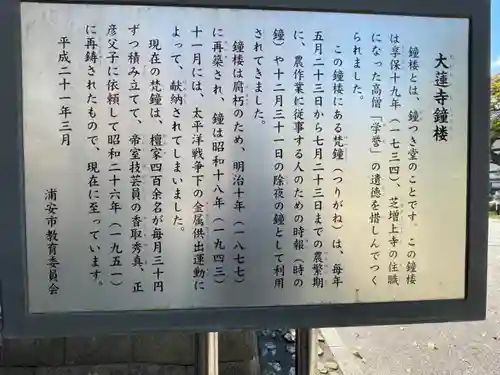 大蓮寺鐘楼
鐘楼とは、鐘つき堂のことです。この鐘楼
は享保十九年（一七三四）、芝増上寺の住職
になった高僧「学誉」の遺徳を惜しんでつく
られました。
この鐘楼にある梵鐘（つりがね）は、毎年
五月二十三日から七月二十三日までの農繁期
に、農作業に従事する人のための時報（時の
鐘）や十二月三十一日の除夜の鐘として利用
されてきました。
鐘楼は腐朽のため、明治十年（一八七七）
に再築され、鐘は昭和十八年（一九四三）
十一月には、太平洋戦争下の金属供出運動に
よって、献納されてしまいました。
現在の梵鐘は、檀家四百余名が毎月三十円
ずつ積み立てて、帝室技芸員の香取秀真、正
彦父子に依頼して昭和二十六年（一九五一）
に再鋳されたもので、現在に至っています。
平成二十一年三月
浦安市教育委員会